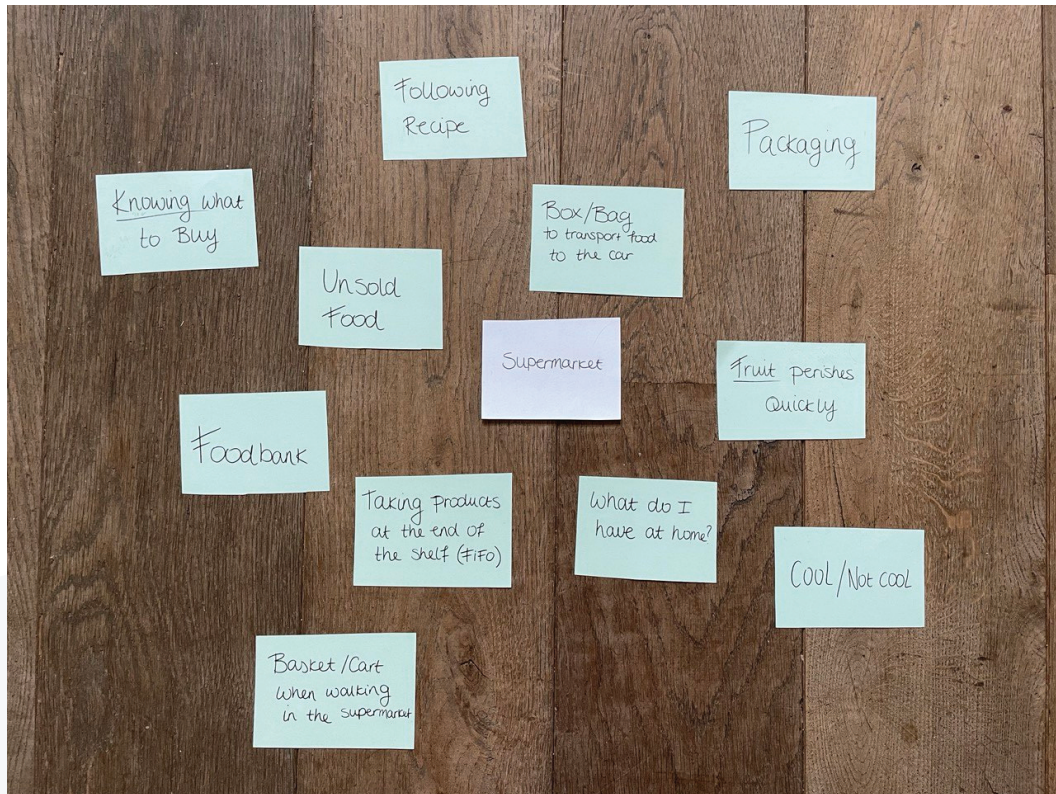 Following
Recipe
Packaging
Knowing what
to Buy
Box/Bag
to transport food
to the car
Unsold
Food
Supermarket
Fruit perishes
Quickly
Foodbank
Taking products
at the end of
the shelf (FiFo)
What do I
have at home?
COOL/Not COOL
Basket/Cart
when walking
in the supermarket